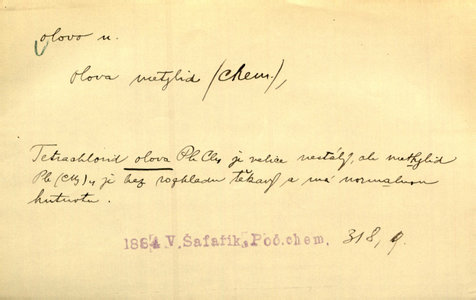 olovo n.
olova methylid (chem.),
Tetrachlorid olova Pb Cl4 je velice nestálý, ale methylid
Pb (CH3)4 je bez rozkladu těkavý a má normalnou
hutnotu.
1884 V. Šafařík, Poč. chem. 318, 9.